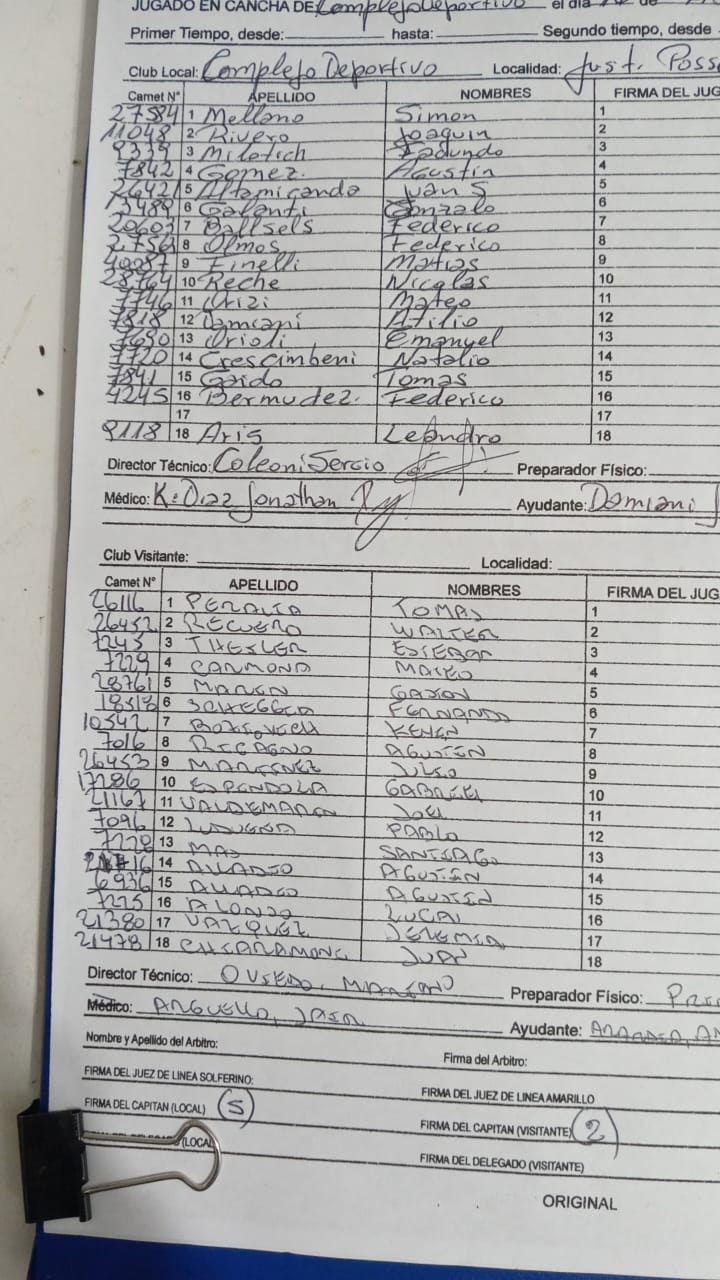 JUGADO EN CANCHA DE Complejo Deportivo el día de
Primer Tiempo, desde: hasta: Segundo tiempo, desde
Club Local: Complejo Deportivo Localidad: Just. Poss
Carnet N° APELLIDO NOMBRES FIRMA DEL JUG
27584 1 Mellano Simon 1
11048 2 Rivero Joaquin 2
9339 3 Miletich Facundo 3
7842 4 Gomez. Agustin 4
26421 5 Altamirando Juan S 5
13489 6 Galanti Gonzalo 6
20603 7 Ballsels Federico 7
27563 8 Olmos Federico 8
40087 9 Finelli Matias 9
28764 10 Reche Nicolas 10
7746 11 Orizi Mateo 11
7818 12 Damiani Atilio 12
7650 13 Orioli Emanuel 13
7720 14 Crescimbeni Natalio 14
7841 15 Gaido Tomas 15
4245 16 Bermudez. Federico 16
17 17
9118 18 Aris Leandro 18
Director Técnico: Coleoni Sergio Preparador Físico:
Médico: K. Diaz Jonathan Ayudante: Damiani
Club Visitante: Localidad:
Carnet N° APELLIDO NOMBRES FIRMA DEL JUG
26116 1 PERALTA TOMAS 1
26452 2 RECUERO WALTER 2
7245 3 THESLER ESTEBAN 3
7229 4 CARMONA MATEO 4
28761 5 MAREN GASTON 5
18518 6 FERNANDO 6
10542 7 KEVEN 7
7016 8 RECAGNO AGUSTIN 8
26453 9 MARTINEZ JULIO 9
17286 10 ESPINDOLA GABRIEL 10
21167 11 VALDEMARIN JOEL 11
7096 12 LUDUEÑA PABLO 12
7228 13 MAS SANTIAGO 13
14 AGUSTIN 14
6936 15 AGUSTIN 15
7275 16 ALONSO LUCAS 16
21380 17 VAZQUEZ JEREMIA 17
21478 18 CHIARAMONE JUAN 18
Director Técnico: OVIEDO, MARIANO Preparador Físico:
Médico: ARGUELLO, Ayudante:
Nombre y Apellido del Arbitro: Firma del Arbitro:
FIRMA DEL JUEZ DE LINEA SOLFERINO: FIRMA DEL JUEZ DE LINEA AMARILLO
FIRMA DEL CAPITAN (LOCAL) 5 FIRMA DEL CAPITAN (VISITANTE) 2
(LOCAL FIRMA DEL DELEGADO (VISITANTE)
ORIGINAL